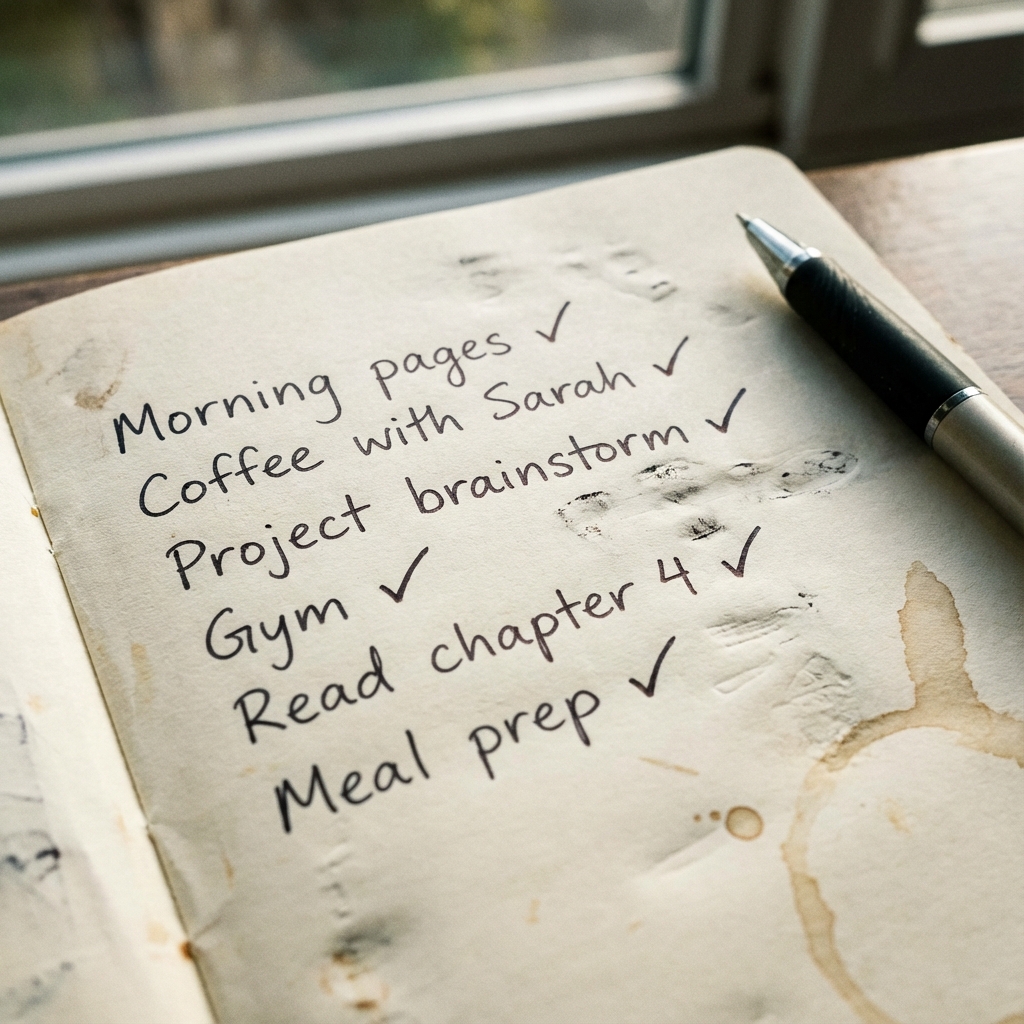 Morning pages ✓
Coffee with Sarah ✓
Project brainstorm ✓
Gym ✓
Read chapter 4 ✓
Meal prep ✓